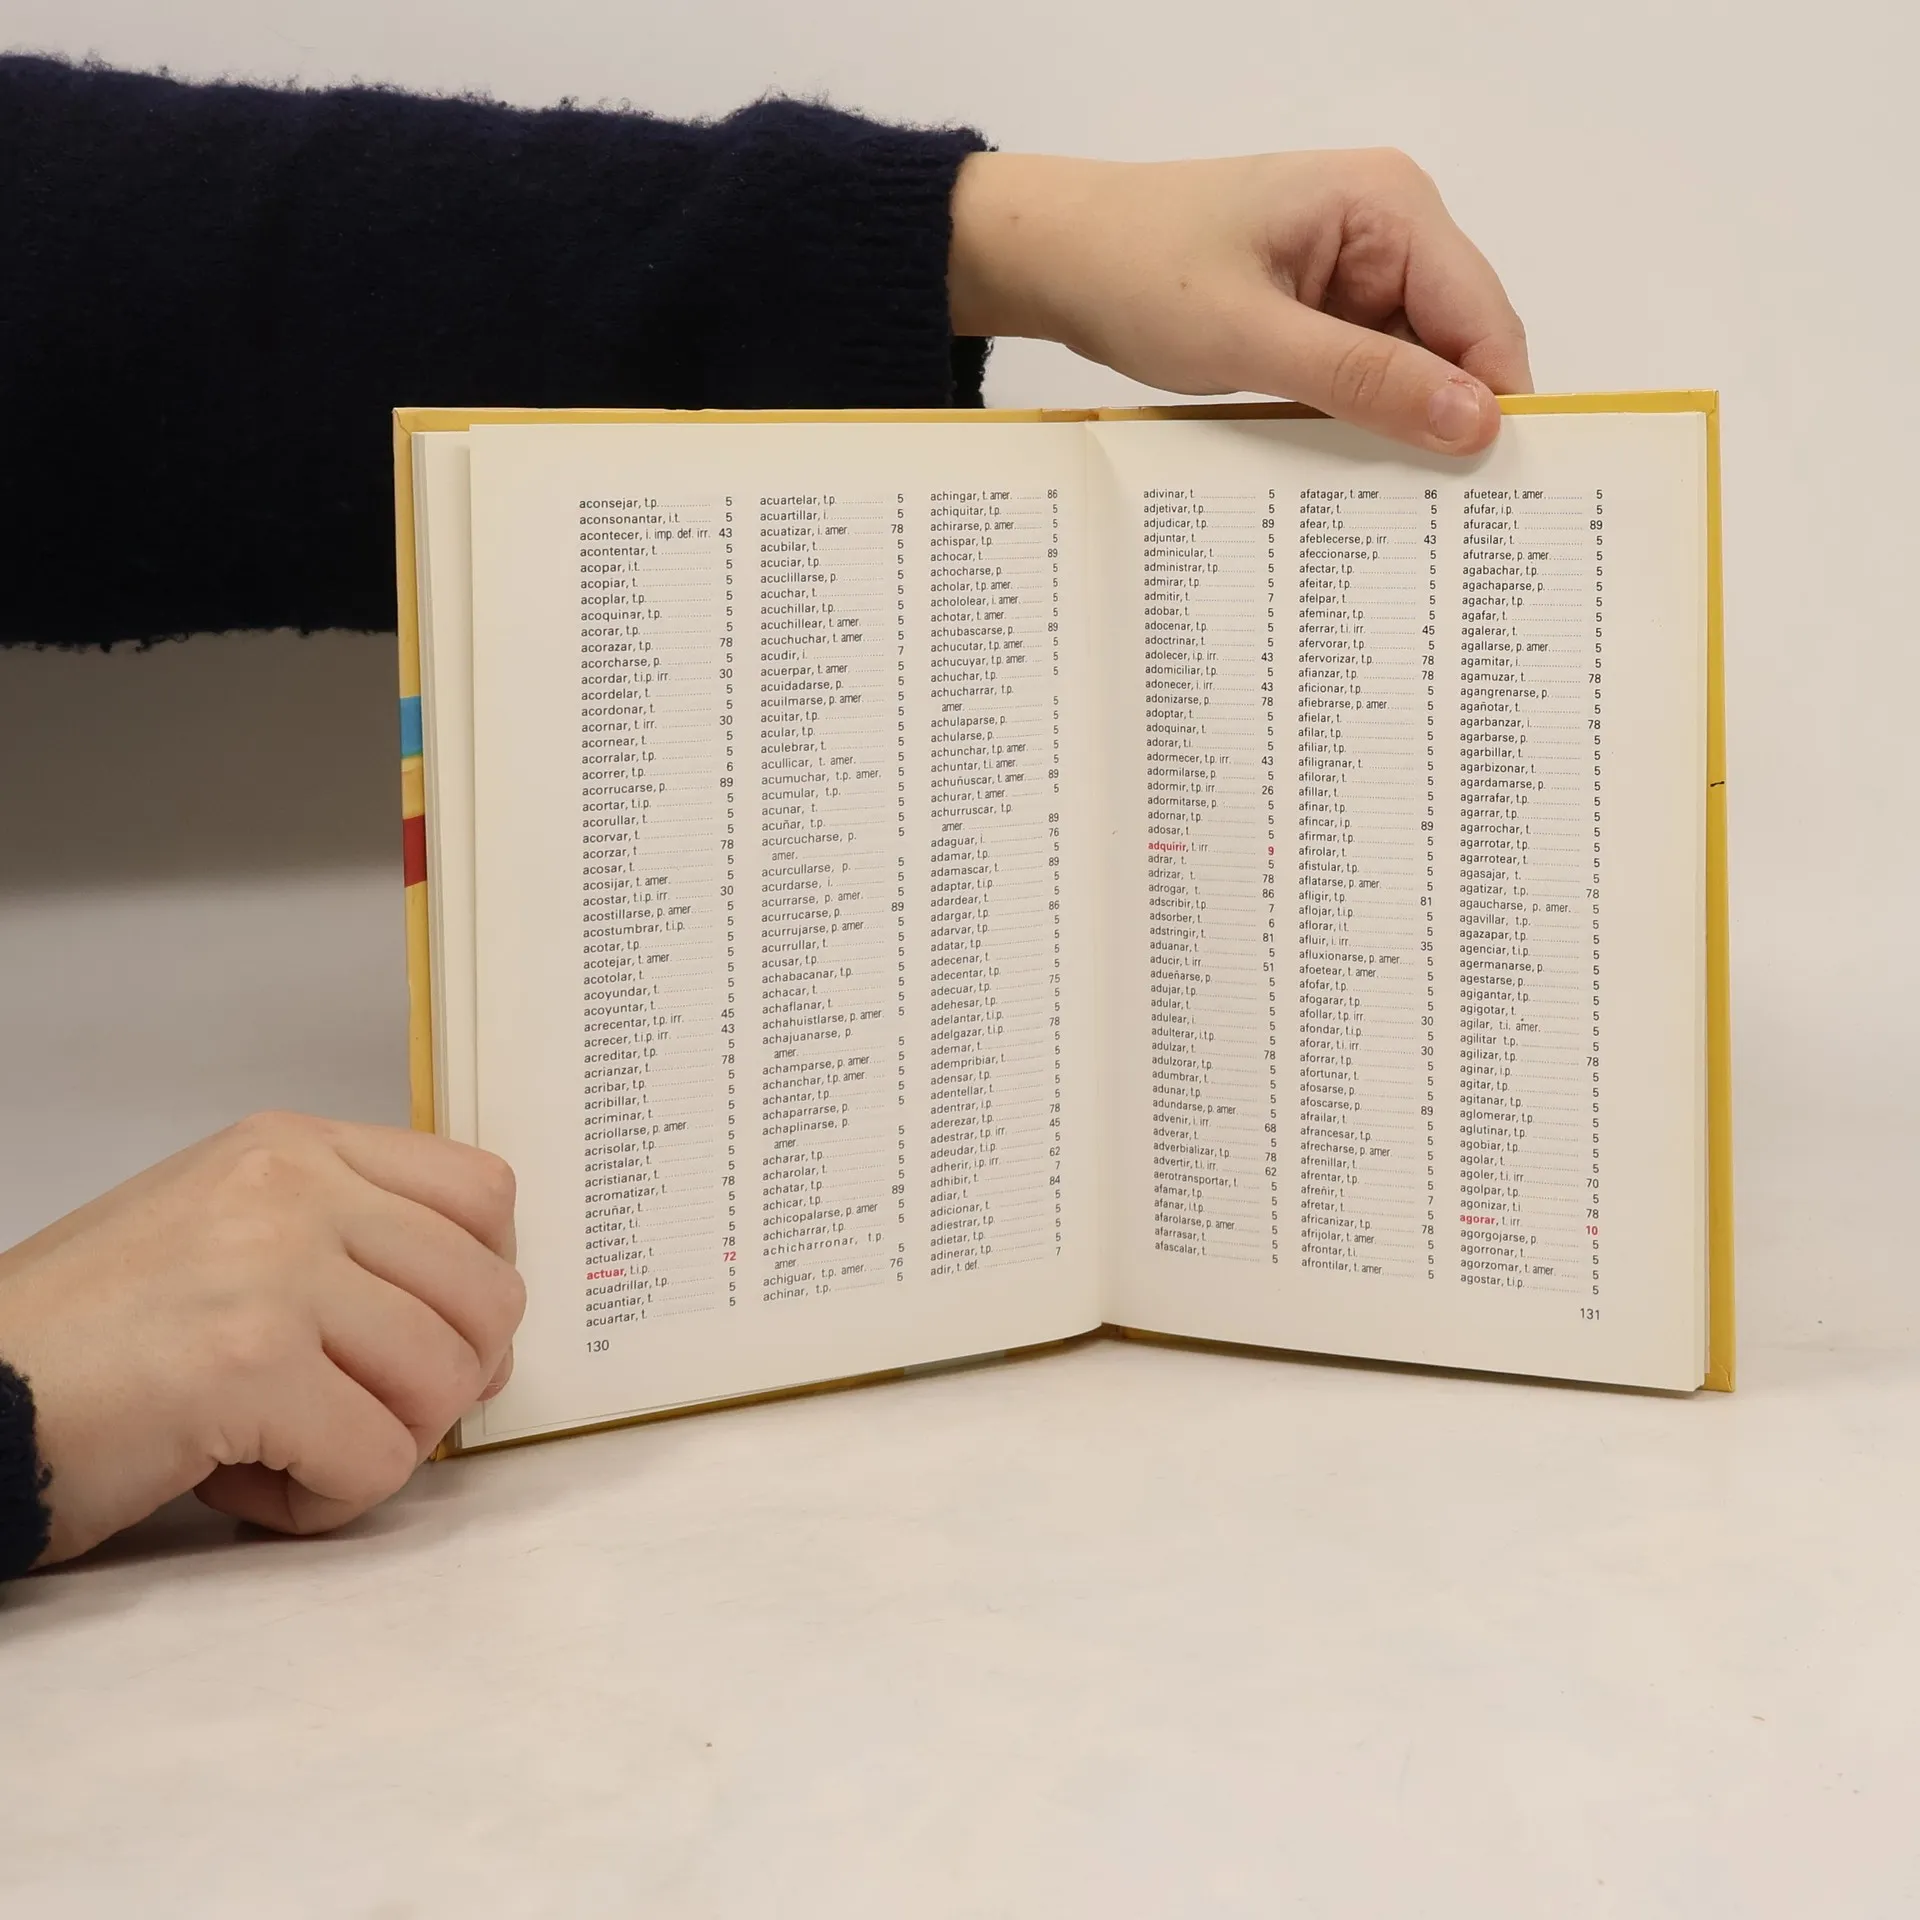 aconsejar, t.p. 5
aconsonantar, i.t. 5
acontecer, i. imp. def. irr. 43
acontentar, t. 5
acopar, i.t. 5
acopiar, t. 5
acoplar, t.p. 5
acoquinar, t.p. 5
acorar, t.p. 5
acorazar, t.p. 78
acorcharse, p. 5
acordar, t.i.p. irr. 30
acordelar, t. 5
acordonar, t. 5
acornar, t. irr. 30
acornear, t. 5
acorralar, t.p. 5
acorrer, t.p. 6
acorrucarse, p. 89
acortar, t.i.p. 5
acorullar, t. 5
acorvar, t. 5
acorzar, t. 78
acosar, t. 5
acosijar, t. amer. 5
acostar, t.i.p. irr. 30
acostillarse, p. amer. 5
acostumbrar, t.i.p. 5
acotar, t.p. 5
acotejar, t. amer. 5
acotolar, t. 5
acoyundar, t. 5
acoyuntar, t. 5
acrecentar, t.p. irr. 45
acrecer, t.i.p. irr. 43
acreditar, t.p. 5
acrianzar, t. 78
acribar, t.p. 5
acribillar, t. 5
acriminar, t. 5
acriollarse, p. amer. 5
acrisolar, t.p. 5
acristalar, t. 5
acristianar, t. 5
acromatizar, t. 78
acruñar, t. 5
actitar, t.i. 5
activar, t. 5
actualizar, t. 78
actuar, t.i.p. 72
acuadrillar, t.p. 5
acuantiar, t. 5
acuartar, t. 5
130
acuartelar, t.p. 5
acuartillar, i. 5
acuatizar, i. amer. 78
acubilar, t. 5
acuciar, t.p. 5
acuclillarse, p. 5
acuchar, t. 5
acuchillar, t.p. 5
acuchillear, t. amer. 5
acuchuchar, t. amer. 5
acudir, i. 7
acuerpar, t. amer. 5
acuidadarse, p. 5
acuilmarse, p. amer. 5
acuitar, t.p. 5
acular, t.p. 5
aculebrar, t. 5
acullicar, t. amer. 5
acumuchar, t.p. amer. 5
acumular, t.p. 5
acunar, t. 5
acuñar, t.p. 5
acurcucharse, p.
amer. 5
acurcullarse, p. 5
acurdarse, i. 5
acurrarse, p. amer. 5
acurrucarse, p. 89
acurrujarse, p. amer. 5
acurrullar, t. 5
acusar, t.p. 5
achabacanar, t.p. 5
achacar, t. 5
achaflanar, t. 5
achahuistlarse, p. amer. 5
achajuanarse, p.
amer. 5
achamparse, p. amer. 5
achanchar, t.p. amer. 5
achantar, t.p. 5
achaparrarse, p. 5
achaplinarse, p.
amer. 5
acharar, t.p. 5
acharolar, t. 5
achatar, t.p. 5
achicar, t.p. 89
achicopalarse, p. amer 5
achicharrar, t.p. 5
achicharronar, t.p.
amer. 5
achiguar, t.p. amer. 76
achinar, t.p. 5
achingar, t. amer. 86
achiquitar, t.p. 5
achirarse, p. amer. 5
achispar, t.p. 5
achocar, t. 89
achocharse, p. 5
acholar, t.p. amer. 5
achololear, i. amer. 5
achotar, t. amer. 5
achubascarse, p. 89
achucutar, t.p. amer. 5
achucuyar, t.p. amer. 5
achuchar, t.p. 5
achucharrar, t.p.
amer. 5
achulaparse, p. 5
achularse, p. 5
achunchar, t.p. amer. 5
achuntar, t.i. amer. 5
achuñuscar, t. amer. 89
achurar, t. amer. 5
achurruscar, t.p.
amer. 89
adaguar, i. 76
adamar, t.p. 5
adamascar, t. 89
adaptar, t.i.p. 5
adardear, t. 5
adargar, t.p. 86
adarvar, t.p. 5
adatar, t.p. 5
adecenar, t. 5
adecentar, t.p. 5
adecuar, t.p. 75
adehesar, t.p. 5
adelantar, t.i.p. 5
adelgazar, t.i.p. 78
ademar, t. 5
adempribiar, t. 5
adensar, t.p. 5
adentellar, t. 5
adentrar, i.p. 5
aderezar, t.p. 78
adestrar, t.p. irr. 45
adeudar, t.i.p. 5
adherir, i.p. irr. 62
adhibir, t. 7
adiar, t. 84
adicionar, t. 5
adiestrar, t.p. 5
adietar, t.p. 5
adinerar, t.p. 5
adir, t. def. 7
adivinar, t. 5
adjetivar, t.p. 5
adjudicar, t.p. 89
adjuntar, t. 5
adminicular, t. 5
administrar, t.p. 5
admirar, t.p. 5
admitir, t. 7
adobar, t. 5
adocenar, t.p. 5
adoctrinar, t. 5
adolecer, i.p. irr. 43
adomiciliar, t.p. 5
adonecer, i. irr. 43
adonizarse, p. 78
adoptar, t. 5
adoquinar, t. 5
adorar, t.i. 5
adormecer, t.p. irr. 43
adormilarse, p. 5
adormir, t.p. irr. 26
adormitarse, p. 5
adornar, t.p. 5
adosar, t. 5
adquirir, t. irr. 9
adrar, t. 5
adrizar, t. 78
adrogar, t. 86
adscribir, t.p. 7
adsorber, t. 6
adstringir, t. 81
aduanar, t. 5
aducir, t. irr. 51
adueñarse, p. 5
adujar, t.p. 5
adular, t. 5
adulear, i. 5
adulterar, i.t.p. 5
adulzar, t. 78
adulzorar, t.p. 5
adumbrar, t. 5
adunar, t.p. 5
adundarse, p. amer. 5
advenir, i. irr. 68
adverar, t. 5
adverbializar, t.p. 78
advertir, t.i. irr. 62
aerotransportar, t. 5
afamar, t.p. 5
afanar, i.t.p. 5
afarolarse, p. amer. 5
afarrasar, t. 5
afascalar, t. 5
afatagar, t. amer. 86
afatar, t. 5
afear, t.p. 5
afeblecerse, p. irr. 43
afeccionarse, p. 5
afectar, t.p. 5
afeitar, t.p. 5
afelpar, t. 5
afeminar, t.p. 5
aferrar, t.i. irr. 45
afervorar, t.p. 5
afervorizar, t.p. 78
afianzar, t.p. 78
aficionar, t.p. 5
afiebrarse, p. amer. 5
afielar, t. 5
afilar, t.p. 5
afiliar, t.p. 5
afiligranar, t. 5
afilorar, t. 5
afillar, t. 5
afinar, t.p. 5
afincar, i.p. 89
afirmar, t.p. 5
afirolar, t. 5
afistular, t.p. 5
aflatarse, p. amer. 5
afligir, t.p. 81
aflojar, t.i.p. 5
aflorar, i.t. 5
afluir, i. irr. 35
afluxionarse, p. amer. 5
afoetear, t. amer. 5
afofar, t.p. 5
afogarar, t.p. 5
afollar, t.p. irr. 30
afondar, t.i.p. 5
aforar, t.i. irr. 30
aforrar, t.p. 5
afortunar, t. 5
afosarse, p. 5
afoscarse, p. 89
afrailar, t. 5
afrancesar, t.p. 5
afrecharse, p. amer. 5
afrenillar, t. 5
afrentar, t.p. 5
afreñir, t. 7
afretar, t. 5
africanizar, t.p. 78
afrijolar, t. amer. 5
afrontar, t.i. 5
afrontilar, t. amer. 5
afuetear, t. amer. 5
afufar, i.p. 5
afuracar, t. 89
afusilar, t. 5
afutrarse, p. amer. 5
agabachar, t.p. 5
agachaparse, p. 5
agachar, t.p. 5
agafar, t. 5
agalerar, t. 5
agallarse, p. amer. 5
agamitar, i. 5
agamuzar, t. 78
agangrenarse, p. 5
agañotar, t. 5
agarbanzar, i. 78
agarbarse, p. 5
agarbillar, t. 5
agarbizonar, t. 5
agardamarse, p. 5
agarrafar, t.p. 5
agarrar, t.p. 5
agarrochar, t. 5
agarrotar, t.p. 5
agarrotear, t. 5
agasajar, t. 5
agatizar, t.p. 78
agaucharse, p. amer. 5
agavillar, t.p. 5
agazapar, t.p. 5
agenciar, t.i.p. 5
agermanarse, p. 5
agestarse, p. 5
agigantar, t.p. 5
agigotar, t. 5
agilar, t.i. amer. 5
agilitar t.p. 5
agilizar, t.p. 78
aginar, i.p. 5
agitar, t.p. 5
agitanar, t.p. 5
aglomerar, t.p. 5
aglutinar, t.p. 5
agobiar, t.p. 5
agolar, t. 5
agoler, t.i. irr. 70
agolpar, t.p. 5
agonizar, t.i. 78
agorar, t. irr. 10
agorgojarse, p. 5
agorronar, t. 5
agorzomar, t. amer. 5
agostar, t.i.p. 5
131